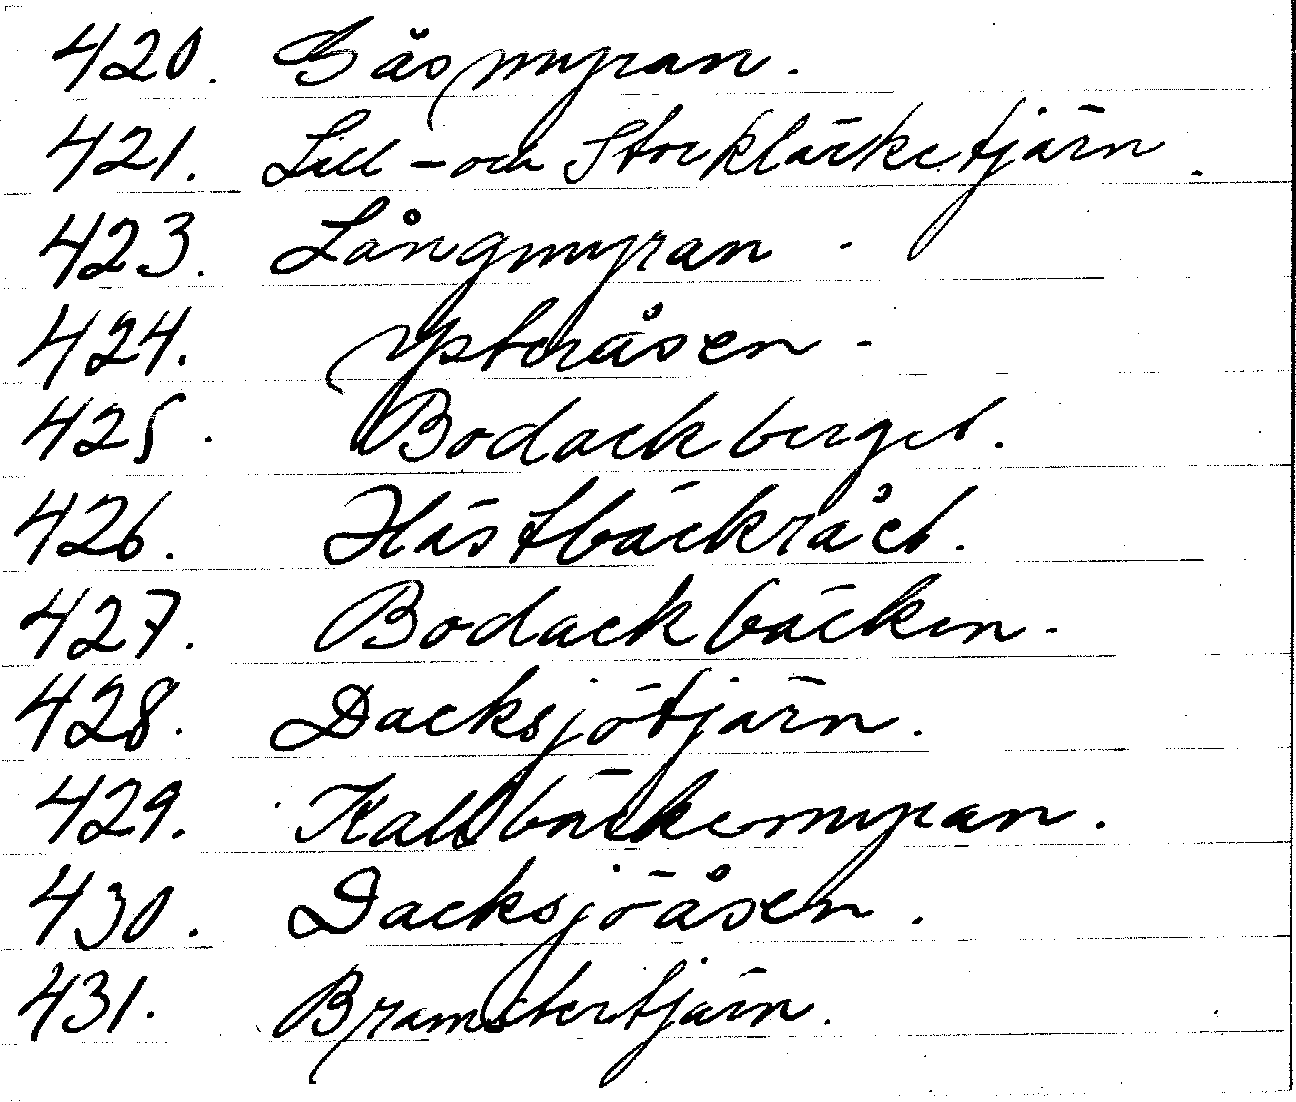 420. Gåsmyran.
421. Lill-och Storkläcketjärn.
423. Långmyran.
424. Ysteråsen.
425. Bodackberget.
426. Hästbäckrået.
427. Bodackbäcken.
428. Dacksjötjärn.
429. Kallbäckemyran.
430. Dacksjöåsen.
431.